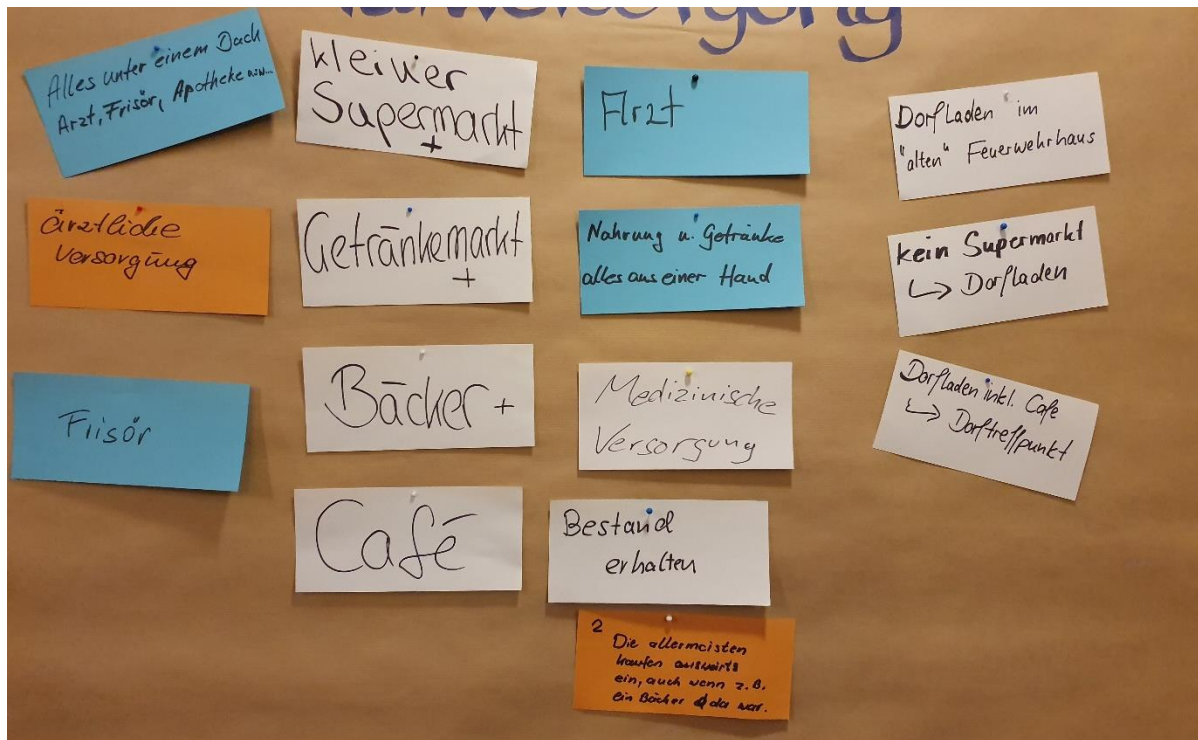 Alles unter einem Dach
Arzt, Frisör, Apotheke usw...
ärztliche
Versorgung
Frisör
kleiner
Supermarkt
+
Getränkemarkt
+
Bäcker +
Café
Arzt
Nahrung u. Getränke
alles aus einer Hand
Medizinische
Versorgung
Bestand
erhalten
2
Die allermeisten
kaufen auswärts
ein, auch wenn z.B.
ein Bäcker da war.
Dorfladen im
"alten" Feuerwehrhaus
kein Supermarkt
↳ Dorfladen
Dorfladen inkl. Cafe
↳ Dorftreffpunkt